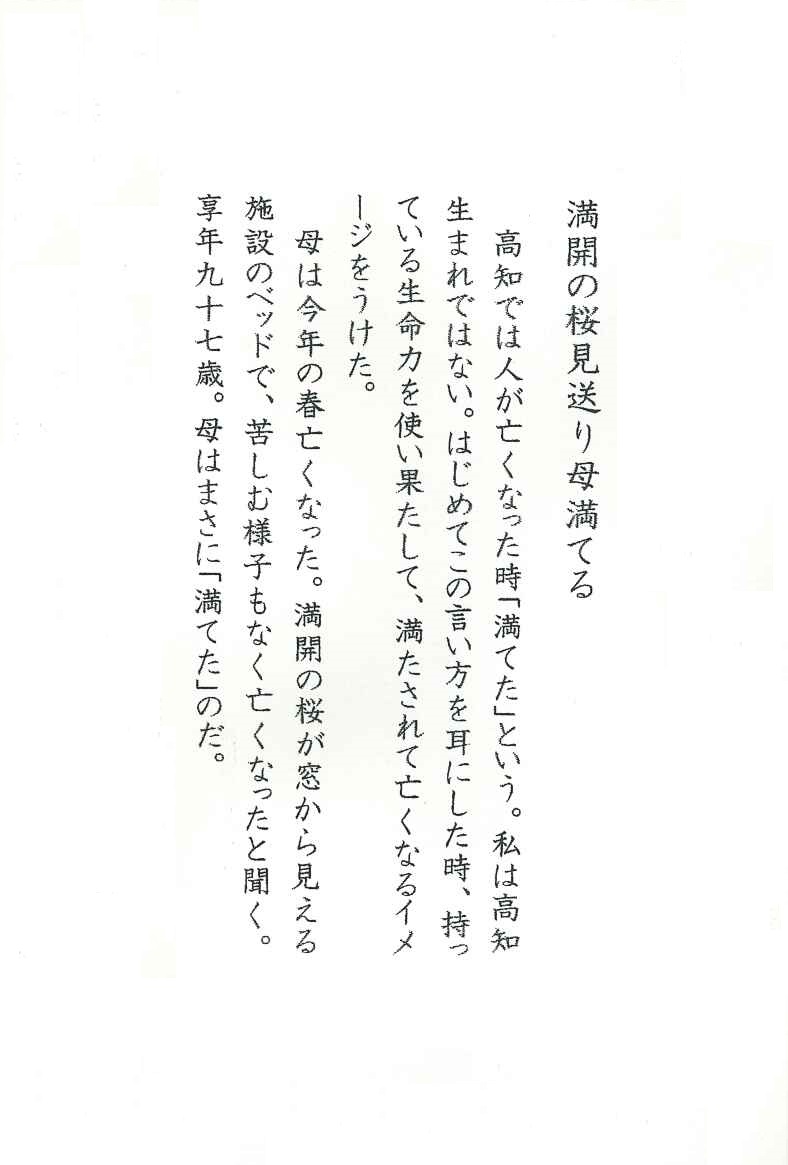 満開の桜見送り母満てる
高知では人が亡くなった時「満てた」という。私は高知
生まれではない。はじめてこの言い方を耳にした時、持っ
ている生命力を使い果たして、満たされて亡くなるイメ
ージをうけた。
母は今年の春亡くなった。満開の桜が窓から見える
施設のベッドで、苦しむ様子もなく亡くなったと聞く。
享年九十七歳。母はまさに「満てた」のだ。